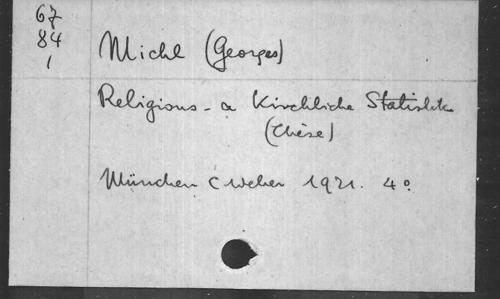 67
84
1
Michl (Georges)
Religions - & Kirchliche Statistik
(Thèse)
München C Weber 1921. 4°